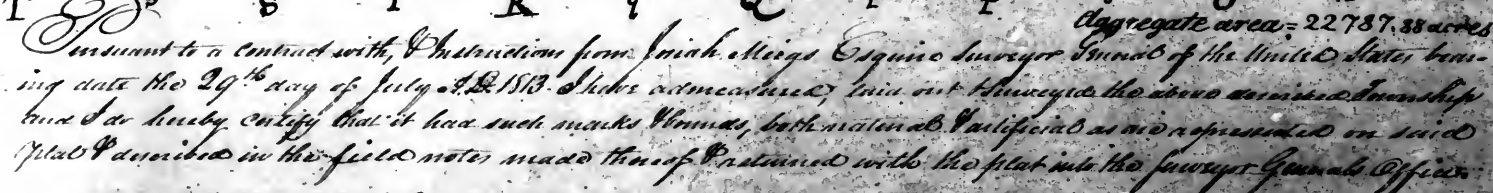 Aggregate area = 22787.88 acres
Pursuant to a contract with, & Instructions from Josiah Meigs Esquire Surveyor General of the United States bear-
ing date the 29th day of July A.D. 1813. I have admeasured, laid out & surveyed the above described Township
and I do hereby certify that it had such marks & bounds, both natural & artificial as are represented on said
plat & described in the field notes made thereof & returned with the plat into the Surveyor Generals Office.